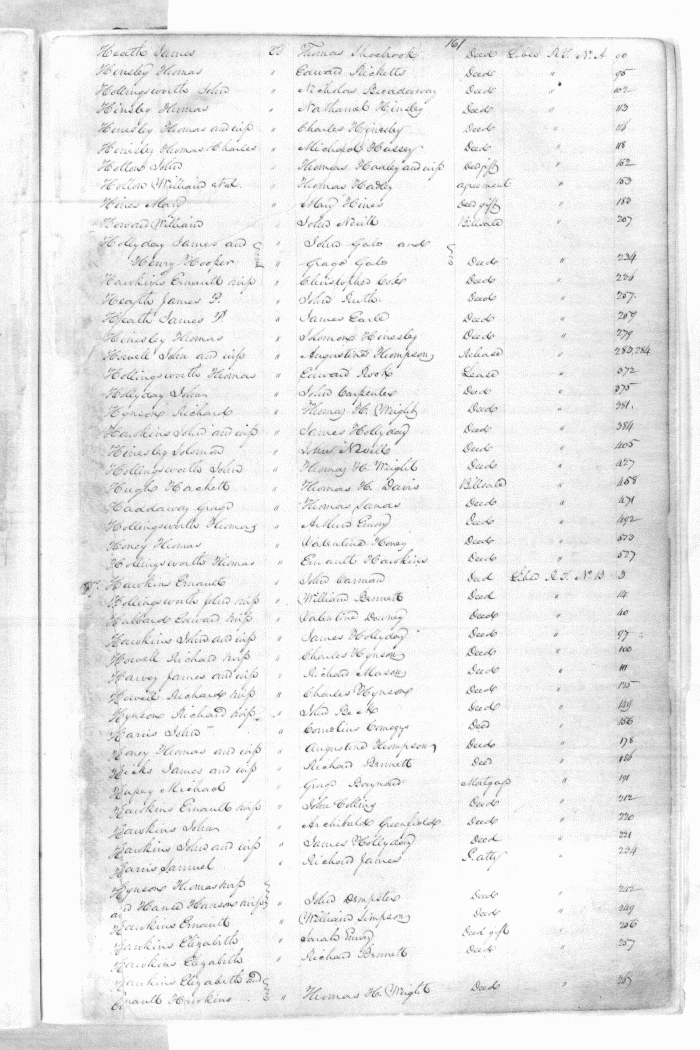 161
Heath James 20 Thomas Shoebrook Deed Liber R.T. No. A 90
Hinsley Thomas " Edward Ricketts Deed " 95
Hollingsworth John " Nicholas Broadaway Deed " 102
Hinsley Thomas " Nathaniel Hinsley Deed " 113
Hinesley Thomas and wife " Charles Hinesley Deed " 116
Hinesley Thomas Charles " Michael Hussey Deed " 118
Hollon John " Thomas Hadley and wife Deed gift " 162
Hollon William " Thomas Hadley agreement " 163
Hines " Mary Hines Deed gift " 183
Howard William " John Nevill Billsale " 207
Hollyday James and " John Gale and
Henry Hooper " Gale Deed " 234
Hawkins Ernault & wife " Christopher Cox Deed " 236
Heath James P. " John Ruth Deed " 257
Heath James P. " James Earle Deed " 259
Hinesley Thomas " Solomon Hinesley Deed " 279
Howell John and wife " Augustine Thompson Release " 283,284
Hollingsworth Thomas " Edward Rook Lease " 372
Hollyday John " John Carpenter Deed " 375
Hynson Richard " Thomas H. Wright Deed " 381
Hawkins John and wife " James Hollyday Deed " 384
Hinesley Solomon " John Nevill Deed " 405
Hollingsworth John " Thomas H. Wright Deed " 427
Hugh Hackett " Thomas H. Davis Billsale " 458
Haddaway " Thomas Deed " 471
Hollingsworth Thomas " Arthur Emory Deed " 492
Honey Thomas " Valentine Honey Deed " 573
Hollingsworth Thomas " Ernault Hawkins Deed " 577
Hawkins Ernault " John Carman Deed Liber R.T. No B 3
Hollingsworth John & wife " William Bennett Deed " 14
Hubbard Edward & wife " Valentine Downey Deed " 40
Hawkins John and wife " James Hollyday Deed " 97
Howell Richard & wife " Charles Hynson Deed " 100
Harvey James and wife " Richard Mason Deed " 111
Howell Richard & wife " Charles Hynson Deed " 125
Hynson Richard & wife " John Beck Deed " 149
Harris John " Cornelius Comegys Deed " 166
Honey Thomas and wife " Augustine Thompson Deed " 178
Hicks James and wife " Richard Bennett Deed " 186
Michael " Baynard Mortgage " 191
Hawkins Ernault & wife " John Collins Deed " 212
Hawkins John " Archibald Greenfield Deed " 220
Hawkins John and wife " James Hollyday Deed " 221
Harris Samuel " Richard James P. atty " 224
Hynson Thomas & wife
and Hance Hanson & wife " John Dempster Deed " 242
Hawkins Ernault " William Simpson Deed " 249
Hawkins Elizabeth " Sarah Emory Deed gift " 256
Hawkins Elizabeth " Richard Bennett Deed " 257
Hawkins Elizabeth and
Ernault Hawkins " Thomas H. Wright Deed " 265